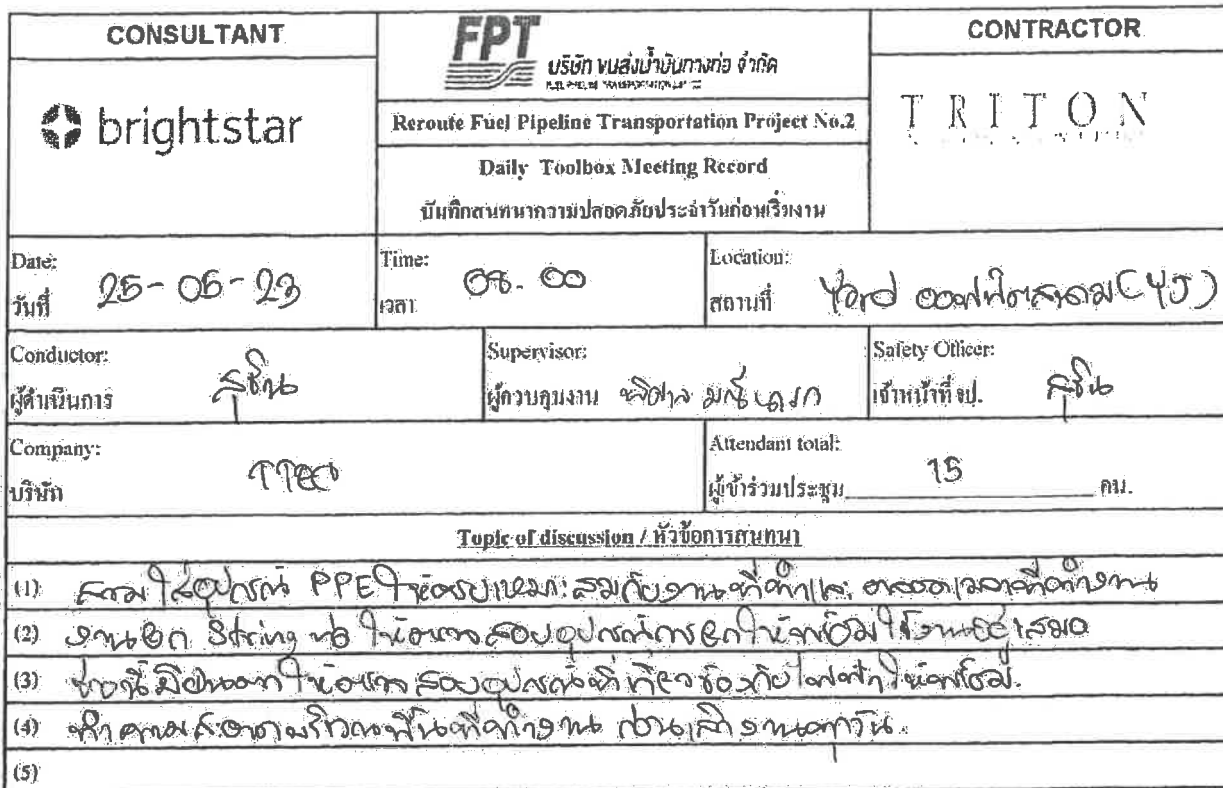 CONSULTANT
brightstar
FPT
บริษัท ขนส่งน้ำมันทางท่อ จำกัด
Reroute Fuel Pipeline Transportation Project No.2
Daily Toolbox Meeting Record
บันทึกสนทนาความปลอดภัยประจำวันก่อนเริ่มงาน
CONTRACTOR
TRITON
Date:
วันที่ 25-05-23
Time:
เวลา 08.00
Location:
สถานที่ Yard
Conductor:
ผู้ดำเนินการ สุชิน
Supervisor:
ผู้ควบคุมงาน
Safety Officer:
เจ้าหน้าที่ จป. สุชิน
Company:
บริษัท
Attendant total:
ผู้เข้าร่วมประชุม 15 คน.
Topic of discussion / หัวข้อการสนทนา
(1) สวมใส่อุปกรณ์ PPE ให้ครบเหมาะสมกับงานที่ทำและตลอดเวลาที่ทำงาน
(2) งานยก String ท่อ ให้ตรวจสอบอุปกรณ์การยกให้พร้อมใช้งานอยู่เสมอ
(3) ช่วงนี้มีฝนตกให้ตรวจสอบอุปกรณ์ที่เกี่ยวข้องกับไฟฟ้าให้พร้อม.
(4) ทำความสะอาดบริเวณพื้นที่ทำงาน ก่อนเลิกงานทุกวัน.
(5)